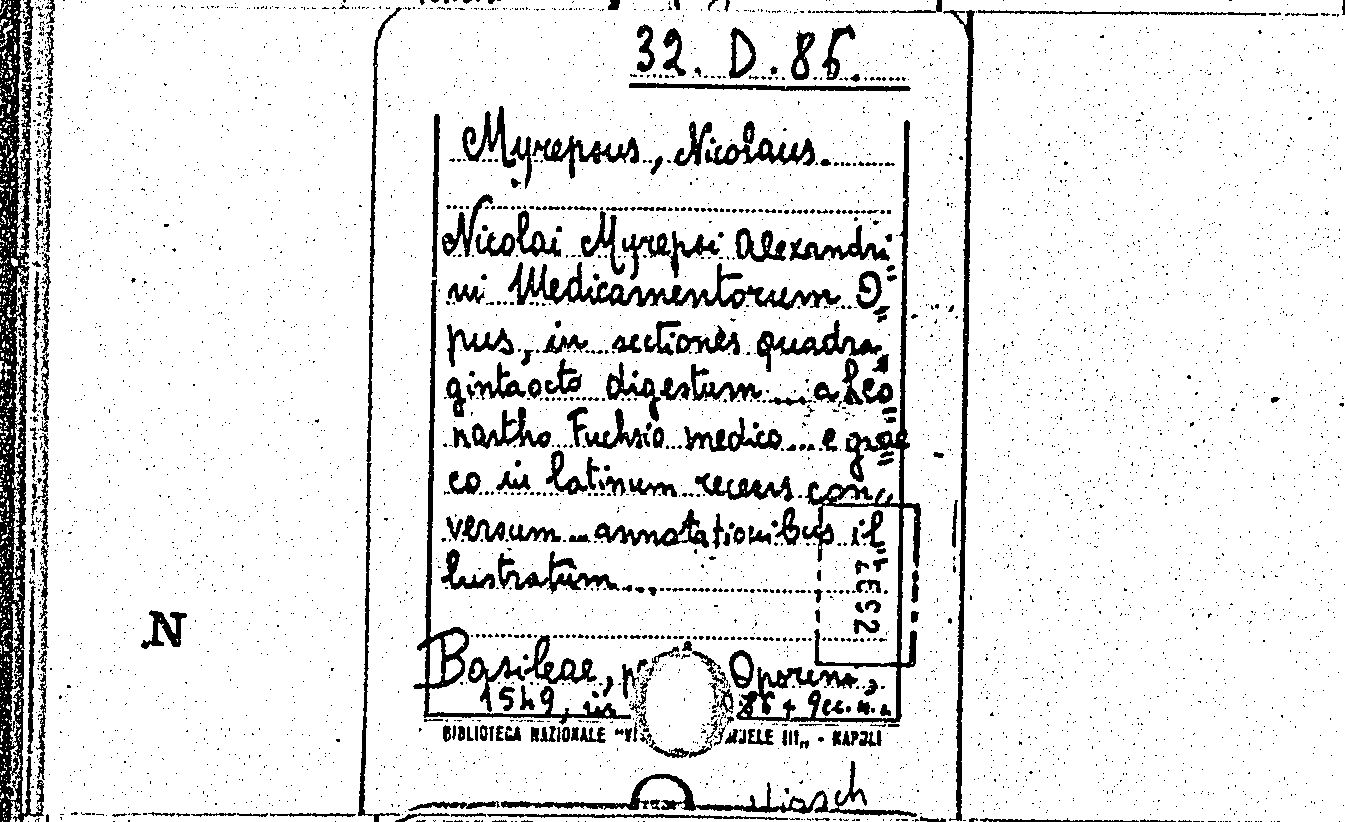 32. D. 86.
Myrepsus, Nicolaus.
Nicolai Myrepsi Alexandri„
ni Medicamentorum O„
pus, in sectiones quadra„
gintaocto digestum ... a Leo„
nartho Fuchsio medico ... e grae„
co in latinum recens con„
versum ... annotationibus il„
lustratum ...
Basileae, Oporini,
1549, in
BIBLIOTECA NAZIONALE III„ - NAPOLI
N
Hirsch